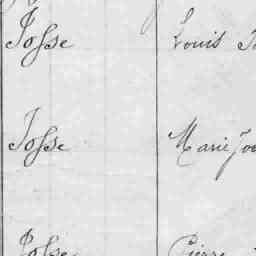 Josse Louis
Josse Marie
Josse Pierre